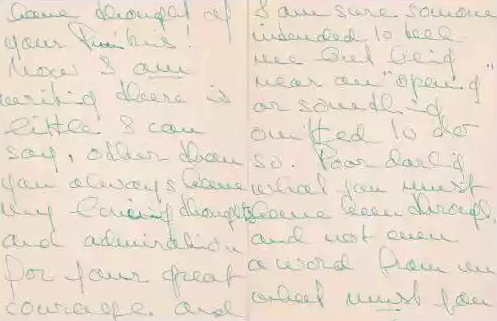 have thought of
your
Now I am
writing there is
little I can
say, other than
you always have
my loving thoughts
and admiration
for your great
courage. and
I am sure someone
intended to tell
me but being
near an "opening"
or something
omitted to do
so. Poor darling
what you must
have been through,
and not even
a word from me
what must you